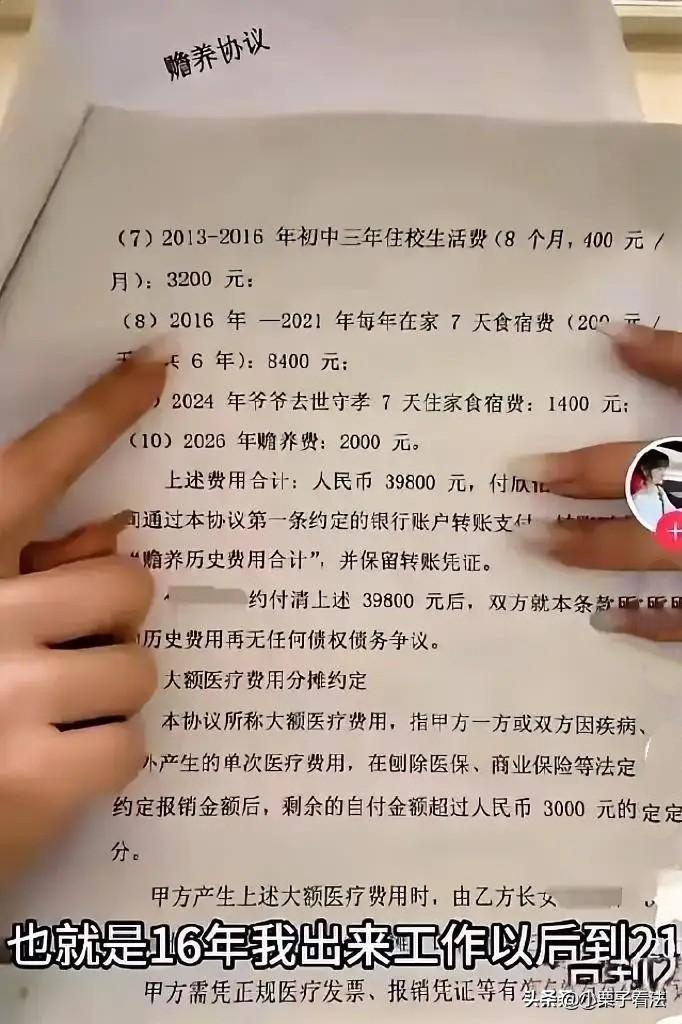 赡养协议
(7) 2013-2016 年初中三年住校生活费(8 个月, 400 元/
月): 3200 元;
(8) 2016 年 —2021 年每年在家 7 天食宿费(200 元/
共 6 年): 8400 元;
2024 年爷爷去世守孝 7 天住家食宿费: 1400 元;
(10) 2026 年赡养费: 2000 元。
上述费用合计: 人民币 39800 元, 付欣
间通过本协议第一条约定的银行账户转账支付
“赡养历史费用合计”, 并保留转账凭证。
约付清上述 39800 元后, 双方就本条款所
历史费用再无任何债权债务争议。
大额医疗费用分摊约定
本协议所称大额医疗费用, 指甲方一方或双方因疾病、
外产生的单次医疗费用, 在刨除医保、商业保险等法定
约定报销金额后, 剩余的自付金额超过人民币 3000 元的
分。
甲方产生上述大额医疗费用时, 由乙方长女
也就是16年我出来工作以后到21
甲方需凭正规医疗发票、报销凭证等有
头条@小栗子看法